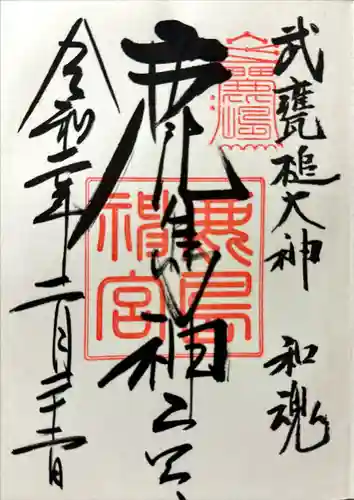 武甕槌大神 和魂
鹿島神宮
鹿島神宮
令和二年二月二十二日